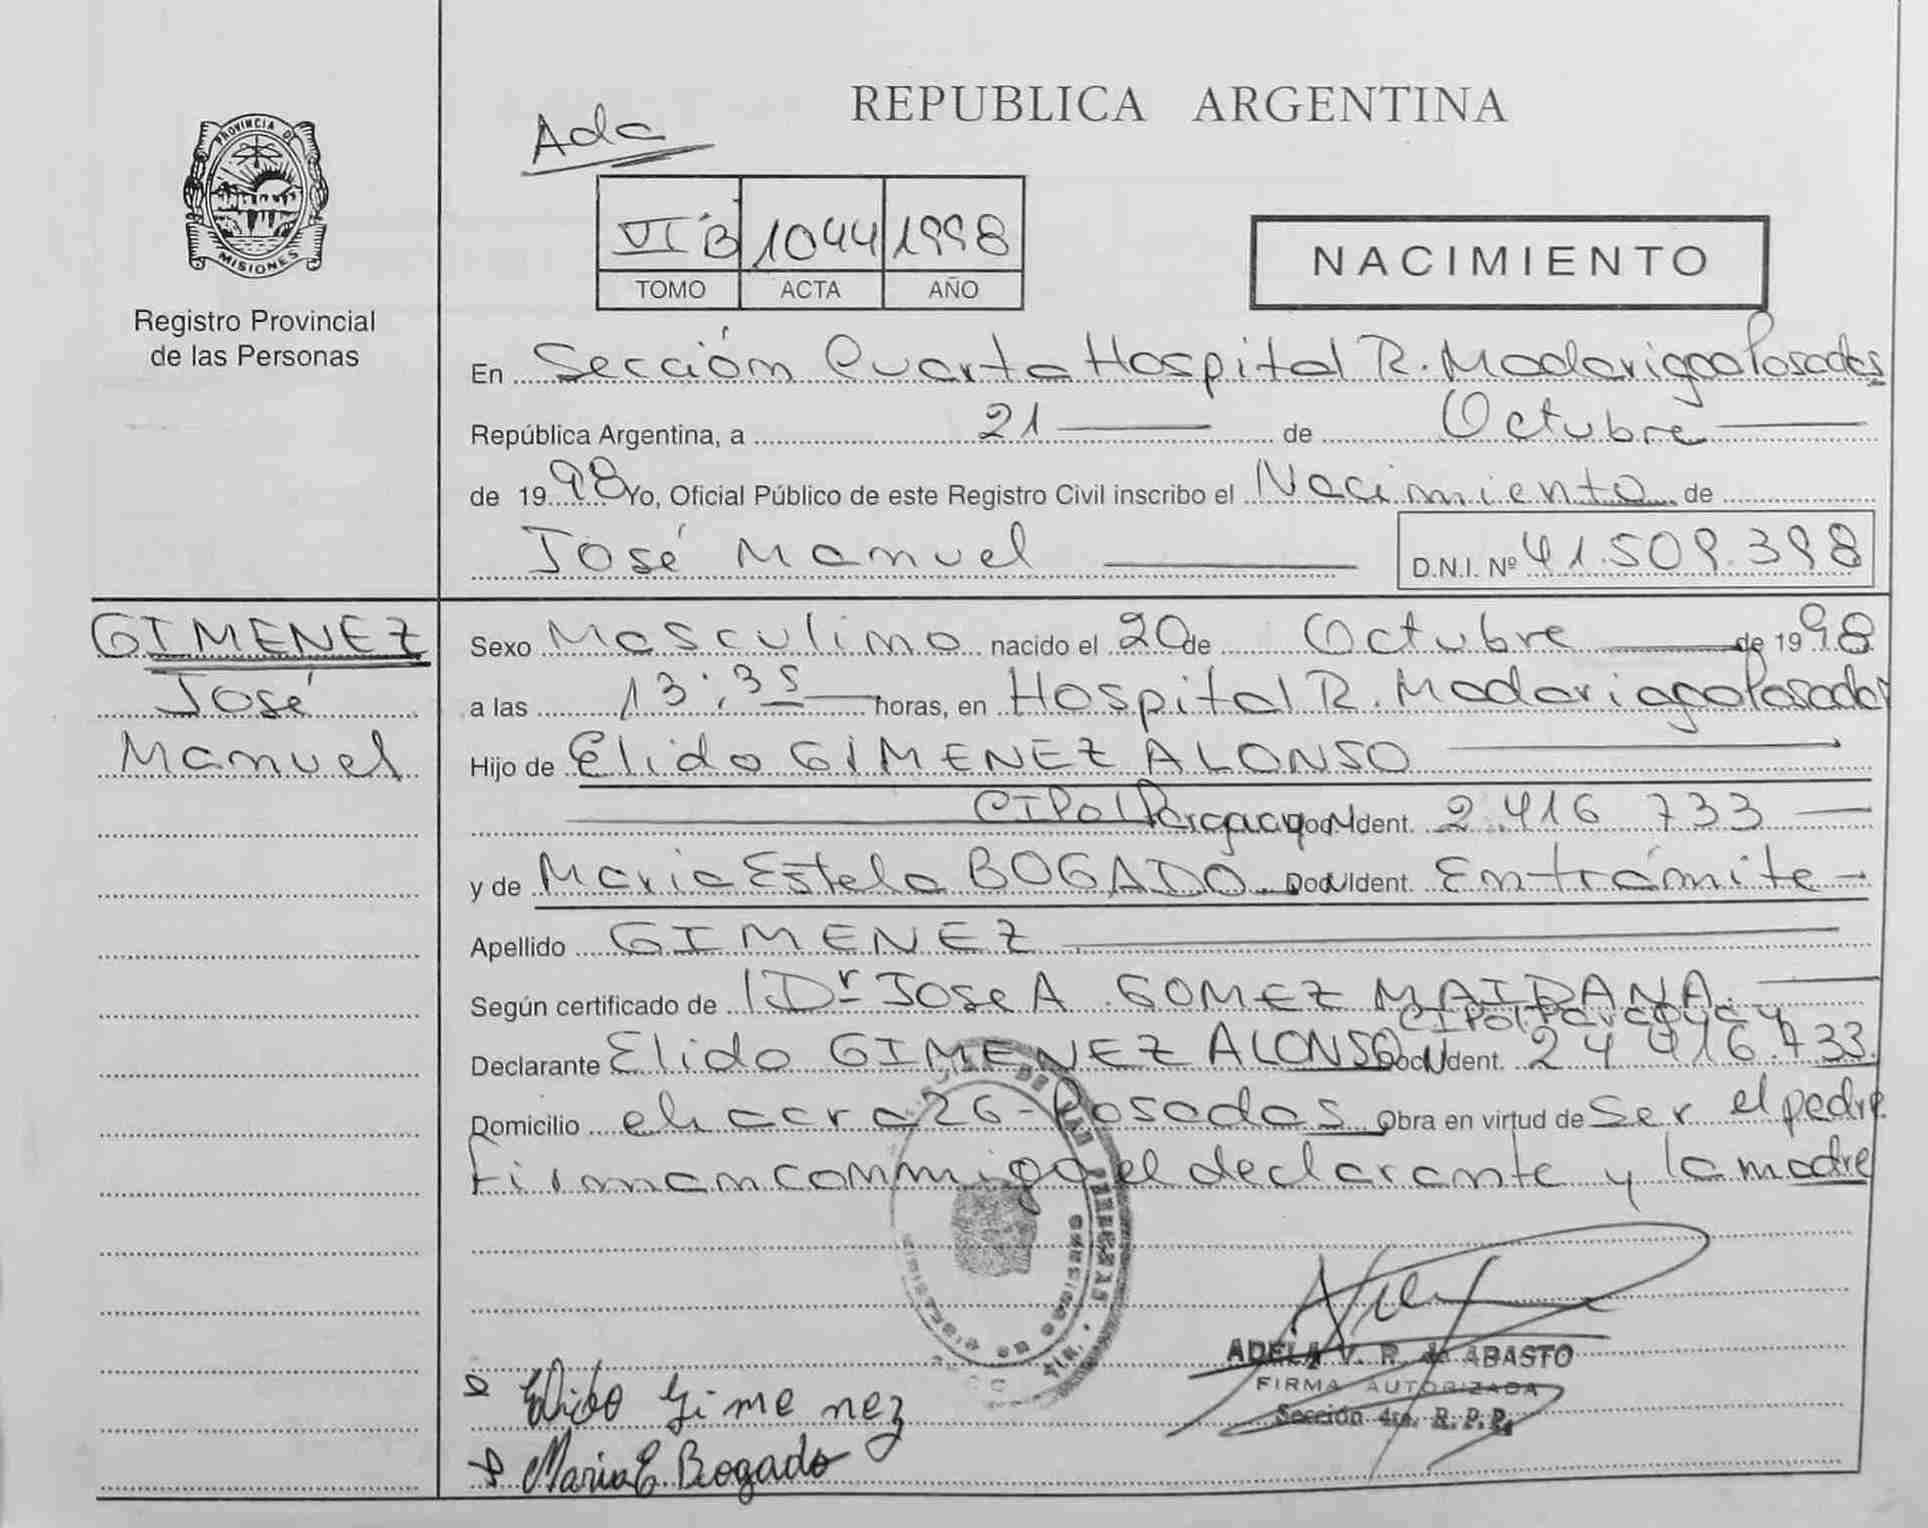 REPUBLICA ARGENTINA
Ada
PROVINCIA DE
MISIONES
Registro Provincial
de las Personas
VI B 1044 1998
TOMO ACTA AÑO
NACIMIENTO
En Sección Cuarta Hospital R. Madariaga Posadas
República Argentina, a 21 de Octubre
de 1998 Yo, Oficial Público de este Registro Civil inscribo el Nacimiento de
José Manuel D.N.I. Nº 41.509.398
GIMENEZ
José
Manuel
Sexo Masculino nacido el 20 de Octubre de 1998
a las 13:35 horas, en Hospital R. Madariaga Posadas
Hijo de Elido GIMENEZ ALONSO
CIPol Paraguay Doc. Ident. 2.416 733
y de Maria Estela BOGADO Doc. Ident. En trámite
Apellido GIMENEZ
Según certificado de Dr JOSE A GOMEZ MAIDANA
CIPol Paraguay
Declarante Elido GIMENEZ ALONSO Doc. Ident. 416.733
Domicilio chacra 26 - Posadas Obra en virtud de Ser el padre
Firman conmigo el declarante y la madre
DE LAS PERSONAS
ADELA V. R. de ABASTO
FIRMA AUTORIZADA
Sección 4ta. R. P. P.
Elido Gimenez
Maria E. Bogado